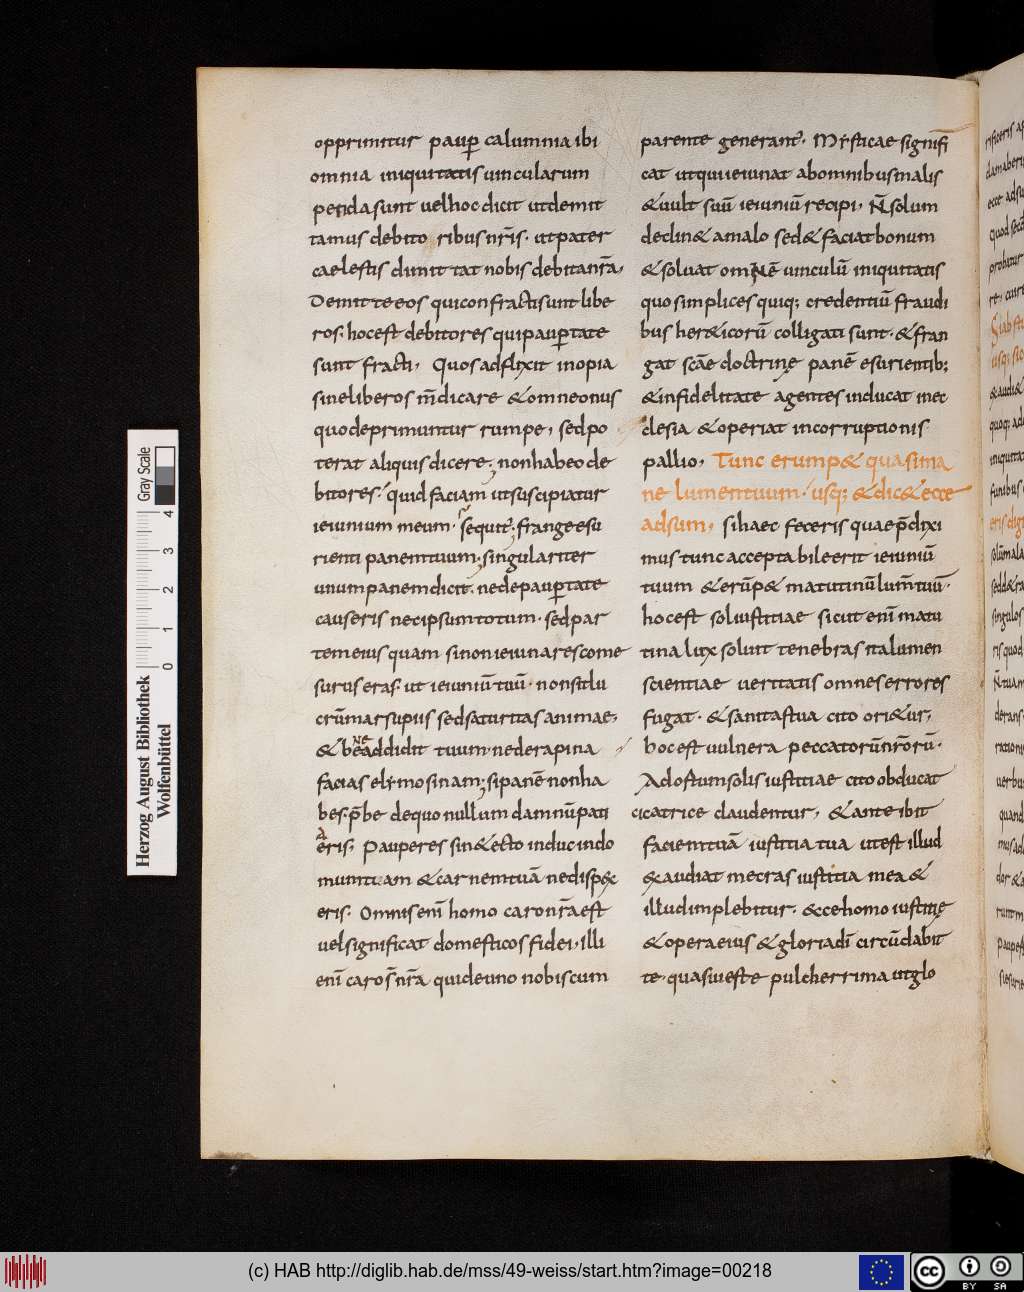 opprimitur paup̄ calumnia ibi
omnia iniquitatis uincularum
pendasunt uelhoc dicit utdemit
tamus debito ribus nr̄is· utpater
caelestis dimittat nobis debitanr̄a,
Demitteeos quiconfractisunt libe
ros· hocest debitores quipaup̄tate
sunt fracti, Quosadflixit inopia
sineliberos m̄dicare &omneonus
quodeprimuntur rumpe, sedpo
terat aliquis dicere; nonhabeo de
bitores· quid faciam utsuscipiatur
ieiunium meum· sequit̄; frangeesu
rienti panemtuum; singulariter
unumpanemdicit, nedepaup̄tate
causeris necipsumtotum· sedpar
temeius quam sinonieiunarescome
surus eras· ut ieiuniū tuū· nonsitlu
crūmarsupiis sedsaturitas animae,
&beneaddidit tuum· nederapina
facias elymosinam; sipanēnonha
bes· p̄be dequo nullum damnūpati
eris, Pauperes sin&ecto inducindo
mumtuam &carnemtuā nedispex
eris· Omnisenī homo caronr̄aest
uelsignificat domesticos fidei, illi
enī caros̄nr̄a quideuno nobiscum
parente generant̄· Mysticae signifi
cat utquiieiunat abomnibusmalis
&uult suū ieiuniū recipi, N̄solum
declin& amalo sed&faciatbonum
&soluat omnē uinculū iniquitatis
quosimplices quiq; credentiū fraudi
bus her&icorū colligati sunt· &fran
gat scāe doctrinę panē esurientib;
&infidelitate agentes inducat inec
clesia &operiat incorruptionis
pallio, Tunc erump& quasima
ne lumentuum· usq; &dic&ecce
adsum, sihaec feceris quaep̄dixi
mus tunc acceptabileerit ieiuniū
tuum &erūp& matutinūlum̄tuū·
hocest soliustitiae sicut enī matu
tina lux soluit tenebras italumen
scientiae ueritatis omneserrores
fugat· &sanitastua cito ori&ur,
hocest uulnera peccatorūnr̄orū·
Adostumsolis iustitiae cito obducat
cicatrice claudentur, &anteibit
faciemtuā iustitia tua utest illud
exaudiat mecras iustitia mea &
illudimplebitur· &ccehomo iustitię
&operaeius &gloriadī circūdabit
te· quasiueste pulcherrima utglo
Gray Scale
4
3
2
1
0
Herzog August Bibliothek
Wolfenbüttel
(c) HAB http://diglib.hab.de/mss/49-weiss/start.htm?image=00218
cc
BY
SA